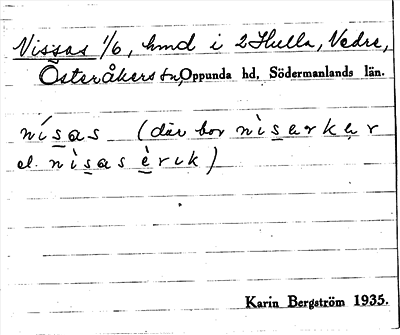 Nissas 1/6, hmd i 2 Hulla, Vedre,
Österåkers sn, Oppunda hd, Södermanlands län.
nísas (där bor nìsarkar
el. nìsas èrik)
Karin Bergström 1935.